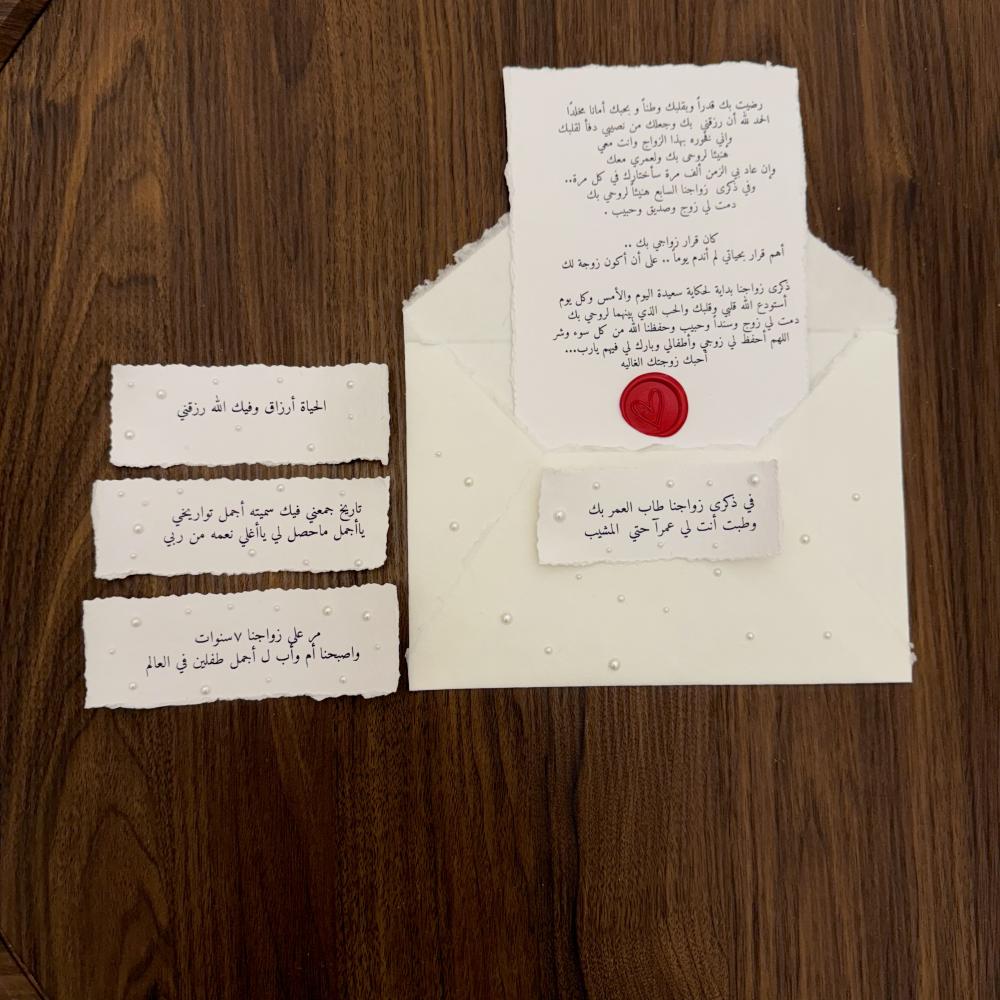 رضيت بك قدراً وبقلبك وطناً و بحبك أمانا مخلدًا
الحمد لله أن رزقني بك وجعلك من نصيبي دفأ لقلبك
وإني فخوره بهذا الزواج وانت معي
هنيئا لروحى بك ولعمري معك
وإن عاد بي الزمن ألف مرة سأختارك في كل مرة..
وفي ذكرى زواجنا السابع هنيئاً لروحي بك
دمت لي زوج وصديق وحبيب .
كان قرار زواجي بك ..
أهم قرار بحياتي لم أندم يوماً .. على أن أكون زوجة لك
ذكرى زواجنا بداية لحكاية سعيدة اليوم والأمس وكل يوم
أستودع الله قلبي وقلبك والحب الذي بينهما لروحي بك
دمت لي زوج وسنداً وحبيب وحفظنا الله من كل سوء وشر
اللهم أحفظ لي زوجي وأطفالي وبارك لي فيهم يارب...
أحبك زوجتك الغاليه
في ذكرى زواجنا طاب العمر بك
وطبت أنت لي عمرآ حتي المشيب
الحياة أرزاق وفيك الله رزقني
تاريخ جمعني فيك سميته أجمل تواريخي
ياأجمل ماحصل لي ياأغلي نعمه من ربي
مر علي زواجنا ٧سنوات
واصبحنا أم وأب ل أجمل طفلين في العالم